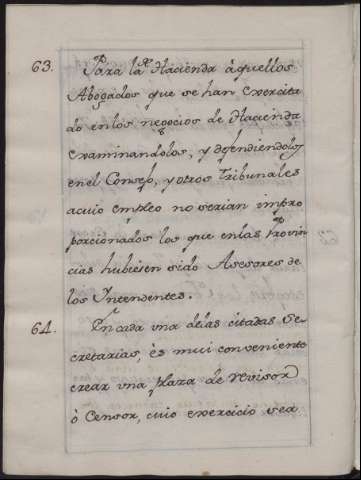 63. Para la R.l Hacienda à quellos
Abogados que se han exercita
do enlos negocios de Hacienda
examinandolos, y defendiendolos
en el Consejo, y otros Tribunales
acuio empleo no serian impro
porcionados los que enlas Provin
cias hubiesen sido Asesores de
los Yntendentes.
64. En cada una delas citadas Se
cretarias, és mui conveniente
crear una plaza de revisor
ò Censor, cuio exercicio sea